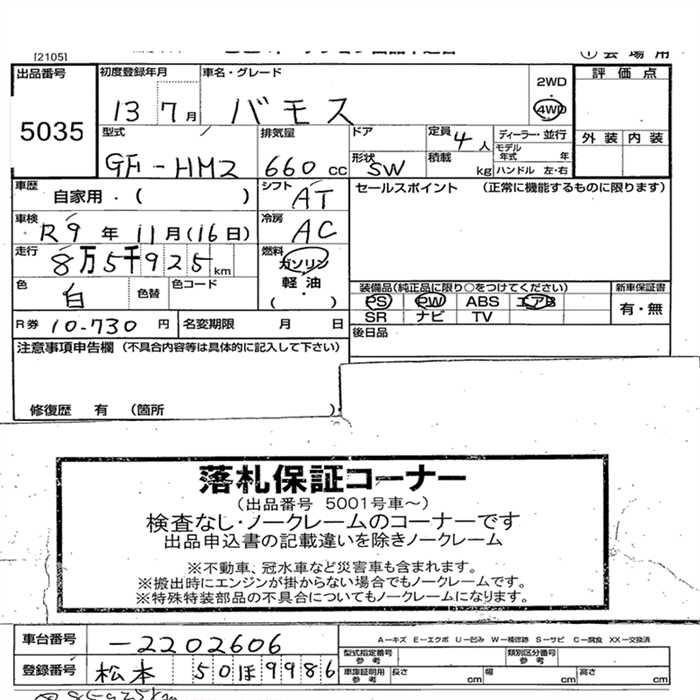 [2105]
① 会場用
出品番号 5035
初度登録年月 13 7月
車名・グレード バモス
2WD
4WD
評価点
外装 内装
型式 GF-HM2
排気量 660 cc
ドア
形状 SW
定員 4人
積載 kg
ディーラー・並行
モデル年式 年
ハンドル 左・右
車歴 自家用・( )
シフト AT
セールスポイント (正常に機能するものに限ります)
車検 R9年11月(16日)
冷房 AC
走行 8万5千925km
燃料 ガソリン
軽油・
( )
色 白
色替
色コード
装備品(純正品に限り○をつけてください)
PS PW ABS エアB
SR ナビ TV
新車保証書
有・無
R券 10-730 円
名変期限 月 日
後日品
注意事項申告欄 (不具合内容等は具体的に記入して下さい)
修復歴 有 (箇所 )
落札保証コーナー
(出品番号 5001号車~)
検査なし・ノークレームのコーナーです
出品申込書の記載違いを除きノークレーム
※不動車、冠水車など災害車も含まれます。
※搬出時にエンジンが掛からない場合でもノークレームです。
※特殊特装部品の不具合についてもノークレームになります。
車台番号 -2202606
A-キズ E-エクボ U-凹み W-補修跡 S-サビ C-腐食 XX-交換済
型式指定番号 参考
類別区分番号 参考
登録番号 松本 50ほ9986
車庫証明用 参考 長さ cm 幅 cm 高さ cm